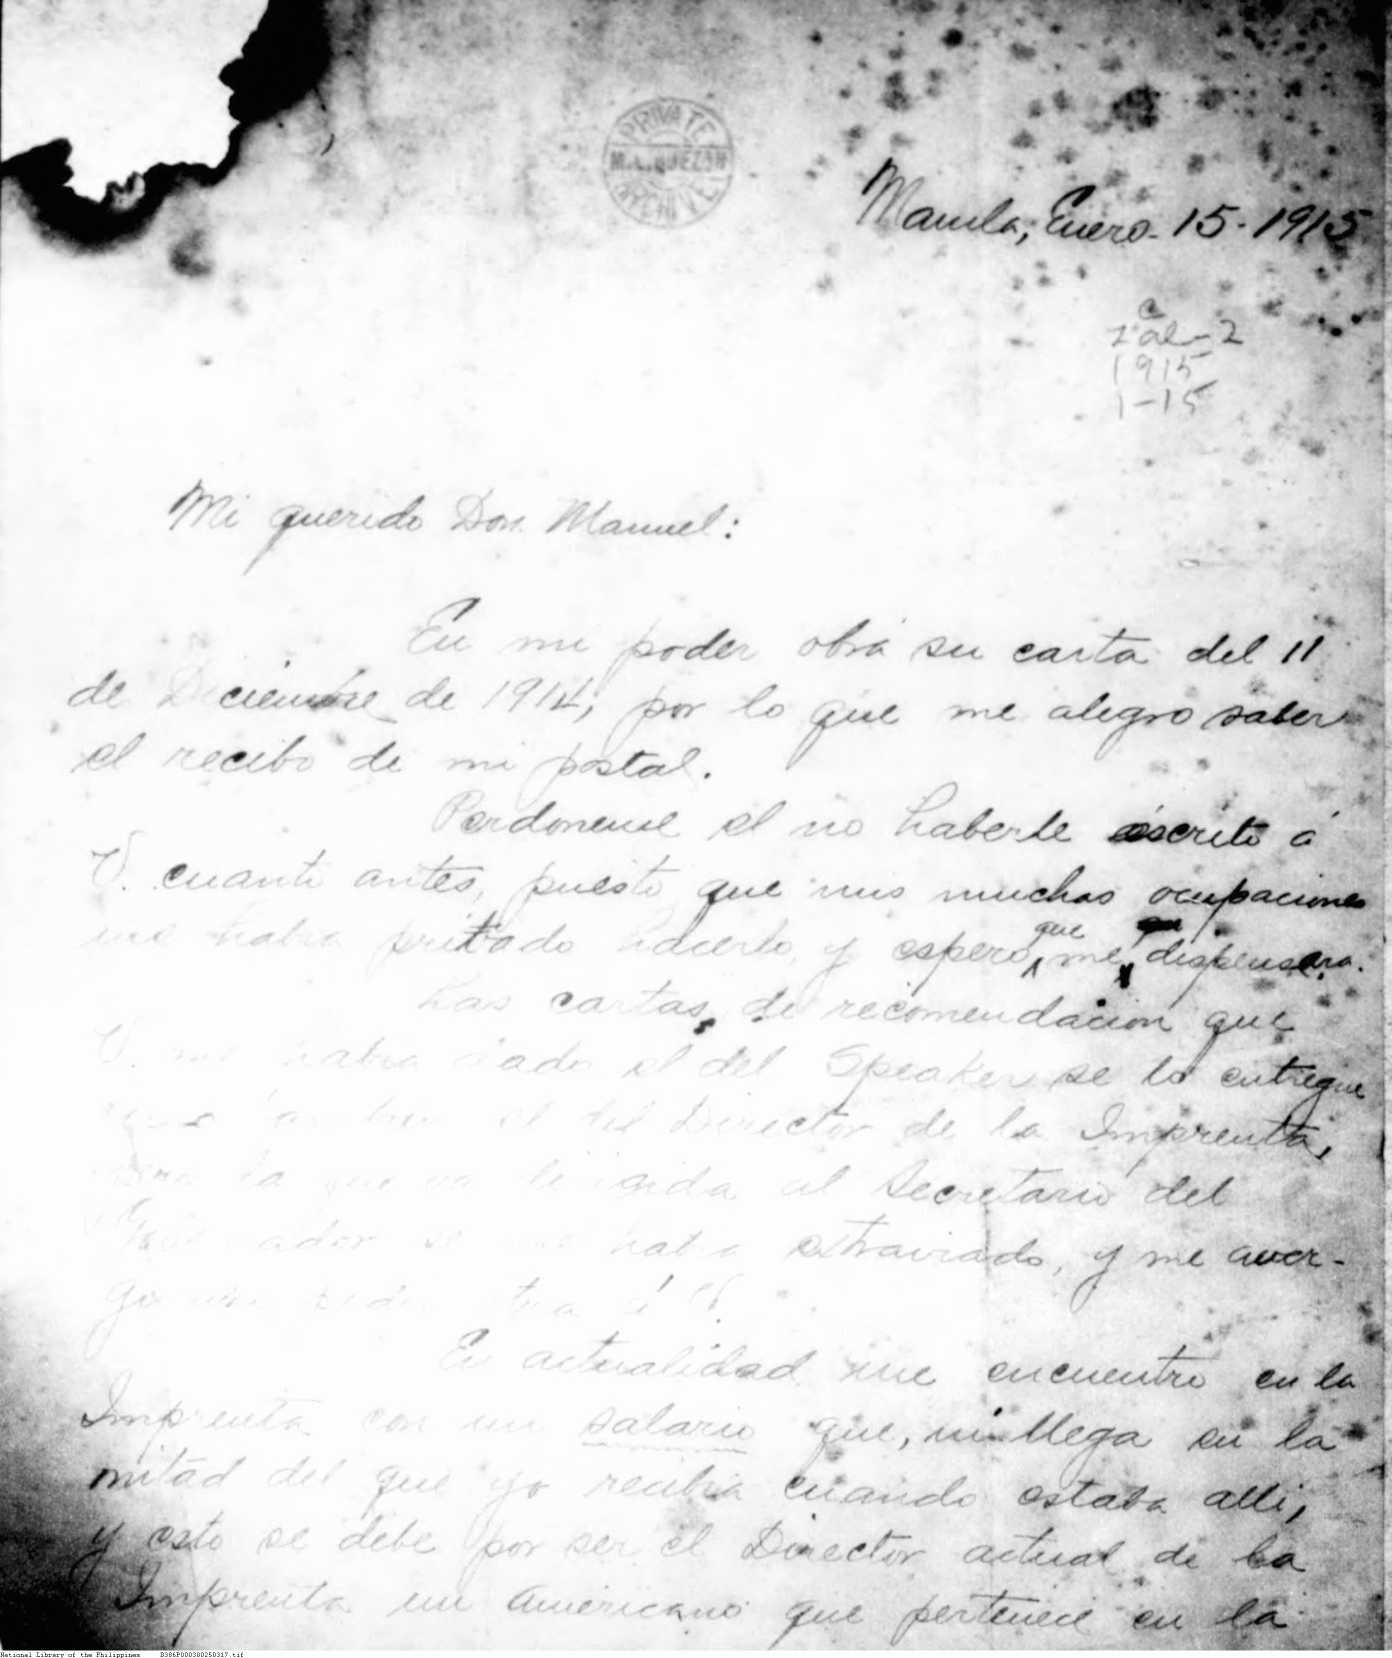 PRIVATE
M.L. QUEZON
ARCHIVE
Manila, Enero. 15. 1915
C
Zal-2
1915
1-15
Mi querido Don. Manuel:
En mi poder obra su carta del 11
de Diciembre de 1914, por lo que me alegro saber
el recibo de mi postal.
Perdoneme el no haberle escrito á
V. cuanto antes, puesto que mis muchas ocupaciones
me habia privado hacerlo, y espero que me dispensara.
Las cartas de recomendacion que
V. me habia dado el del Speaker se lo entregue
el del Director de la Imprenta,
pero la que va dirigida al Secretario del
Gobernador se me habia extraviado, y me aver-
otra á V.
En actualidad me encuentro en la
Imprenta con un salario que, ni llega en la
mitad del que yo recibia cuando estaba alli,
y esto se debe por ser el Director actual de la
Imprenta un americano que pertenece en la
National Library of the Philippines D386P000300250317.tif